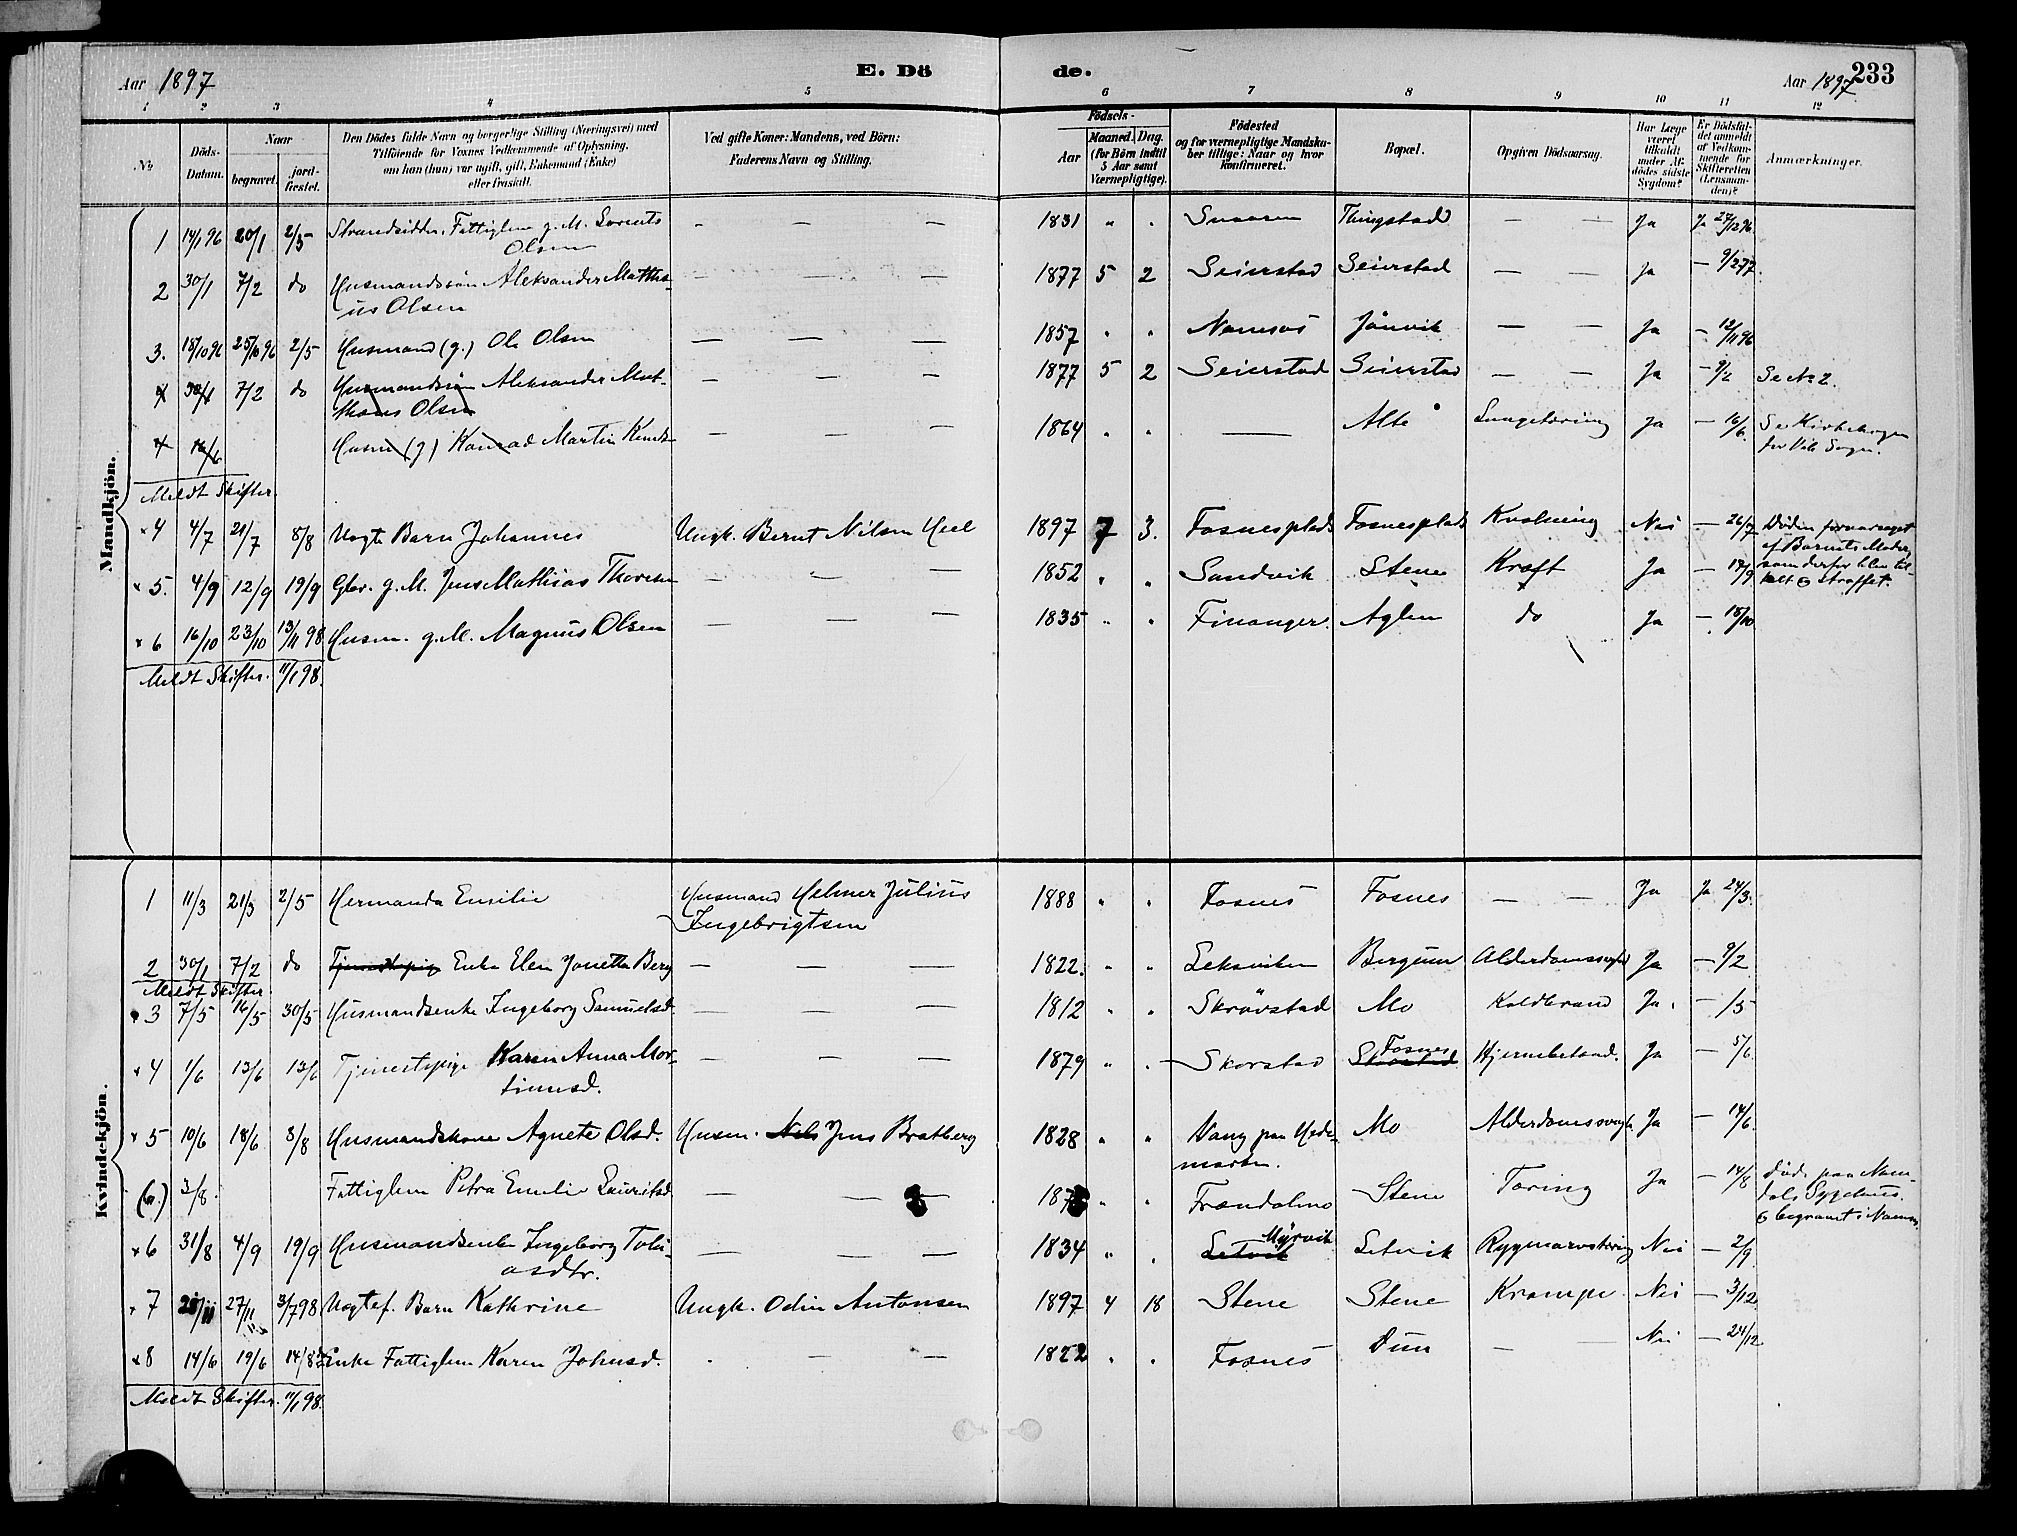 Aar 1897
E. Dö
de.
Aar 1897.
233
1 2 3 4 5 6 7 8 9 10 11 12
No
Döds-Datum.
Naar
begravet.
jord-fæstet.
Den Dödes fulde Navn og borgerlige Stilling (Næringsvei) med
Tilföiende for Voxnes Vedkommende af Oplysning,
om han (hun) var ugift, gift, Enkemand (Enke)
eller fraskilt.
Ved gifte Koner: Mandens, ved Börn:
Faderens Navn og Stilling.
Födsels-
Aar
Maaned. Dag.
(for Börn indtil
5 Aar samt
Værnepligtige).
Födested
og for værnepligtige Mandska-
ber tillige: Naar og hvor
konfirmeret.
Bopæl.
Opgiven Dödsaarsag.
Har Læge
været
tilkaldt
under Af-
dödes sidste
Sygdom?
Er Dödsfal-
det anmeldt
af Vedkom-
mende for
Skifteretten
(Lensman-
den)?
Anmærkninger.
Mandkjön.
1 14/1 96 20/1 2/5 Strandsidder, Fattiglem g. M. Lorents — — — 1831 " " Snaasen Thingstad — — Ja Ja 27/12 96.
Olsen
2 30/1 7/2 do Husmandssön Aleksander Matthæ- — — — 1877 5 2 Seierstad Seierstad — — Ja — 9/2 77.
us Olsen
3. 18/10 96 25/10 96 2/5 Husmand (g.) Ole Olsen — — — 1857 " " Namsos Jönvik — — Ja — 12/11 96
4 30/1 7/2 do Husmandssön Aleksander Mat- — — — 1877 5 2 Seierstad Seierstad — — Ja — 9/2 Se No 2.
thæus Olsen
4 16/6 Husm (g) Konrad Martin — — — 1864 " " — Alte Lungetæring Ja — 16/6. Se Kirkebogen
for Sogn.
Meldt Skifter.
× 4 4/7 21/7 8/8 Uægte Barn Johannes Ungk. Bernt Nilsen 1897 7 3. Fosnesplads Fosnesplads Kvælning Nei — 26/7 Döden foraarsaget
af Barnets Moder,
× 5. 4/9 12/9 19/9 Gbr. g. M. Jens Mathias Thoresen — — — 1852 " " Sandvik Stene Kræft Ja — 17/9 som derfor blev til-
talt og straffet.
× 6 16/10 23/10 13/11 98 Husm. g. M. Magnus Olsen — — — 1835 " " Finanger. Aglen do Ja — 18/10
Meldt Skifter. 11/1 98.
Kvindekjön.
1 11/3 21/3 2/5 Hermanda Emilie Husmand Helmer Julius 1888 " " Fosnes Fosnes — — Ja Ja 24/3.
Ingebrigtsen
2 30/1 7/2 do Tjenestepige Enke Elen Jonetta Berg — — — 1822. " " Leksviken Bergum Alderdomssvaghd Ja — 9/2
Meldt Skifter
× 3 7/5 16/5 30/5 Husmandsenke Ingeborg Samuelsd. — — — 1812 " " Skrövstad Mo Koldbrand Ja. — /5
× 4 1/6 13/6 13/6 Tjenestepige Karen Anna Mor- — — — 1879 " " Skorstad Skorstad Fosnes Hjernebetænd. Ja — 5/6
tinusd.
× 5 10/6 18/6 8/8 Husmandskone Agnete Olsd. Husm. Nels Jens Bratberg 1828 " " Vang paa Hede- Mo Alderdomssvagh. Ja — 14/6.
marken.
(a.) 3/8. Fattiglem Petra Emilie Lauritsd — — — 187 " " Frændalmo Stene Tæring Ja — 14/8 Död paa Nam-
dals Sygehus.
& begravet i Namsos
× 6 31/8 4/9 19/9 Husmandsenke Ingeborg Tobi- — — — 1834 " " Setvik Myrvik Setvik Rygmarvstæring Nei — 2/9.
asdtr.
× 7 27/11 3/7 98 Uægtef. Barn Kathrine Ungk. Odin Antonsen 1897 4 18 Stene Stene Krampe. Nei — 3/12.
× 8 14/6 19/6 14/8 Enke Fattiglem Karen Johnsd. — — — 1822 " " Fosnes Dun — — Nei — 24/12
Meldt Skifter. 11/1 98.